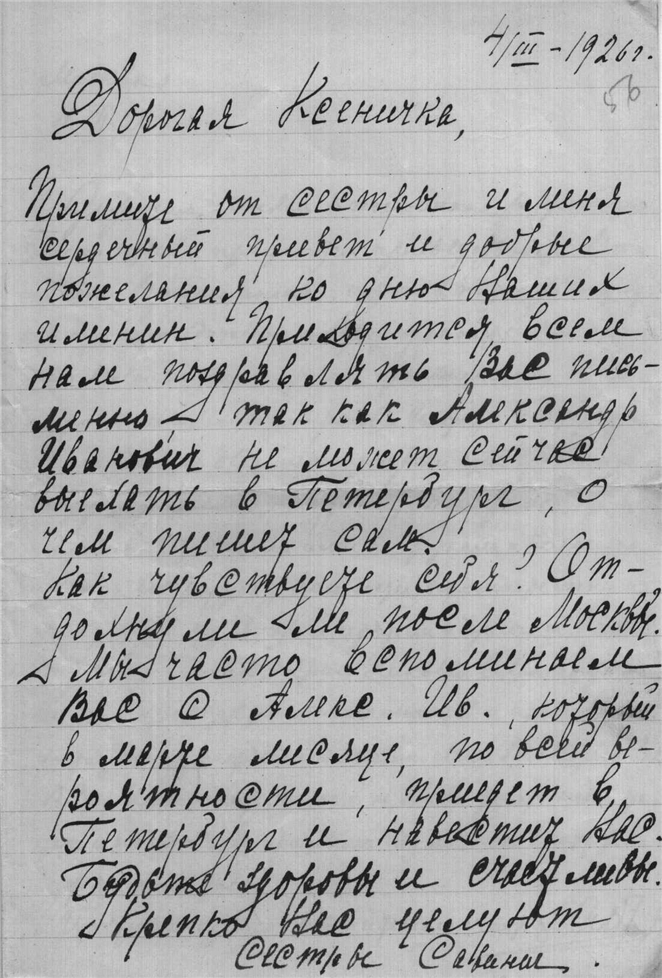 4/III – 1926 г.
56
Дорогая Ксеничка,
Примите от сестры и меня
сердечный привет и добрые
пожелания ко дню Ваших
именин. Приходится всем
нам поздравлять Вас пись-
менно, так как Александр
Иванович не может сейчас
выехать в Петербург, о
чем пишет сам.
Как чувствуете себя? От-
дохнули ли после Москвы?
Мы часто вспоминаем
Вас с Алекс. Ив., который
в марте месяце, по всей ве-
роятности, приедет в
Петербург и навестит Вас.
Будьте здоровы и счастливы.
Крепко Вас целуют
сестры Савины.